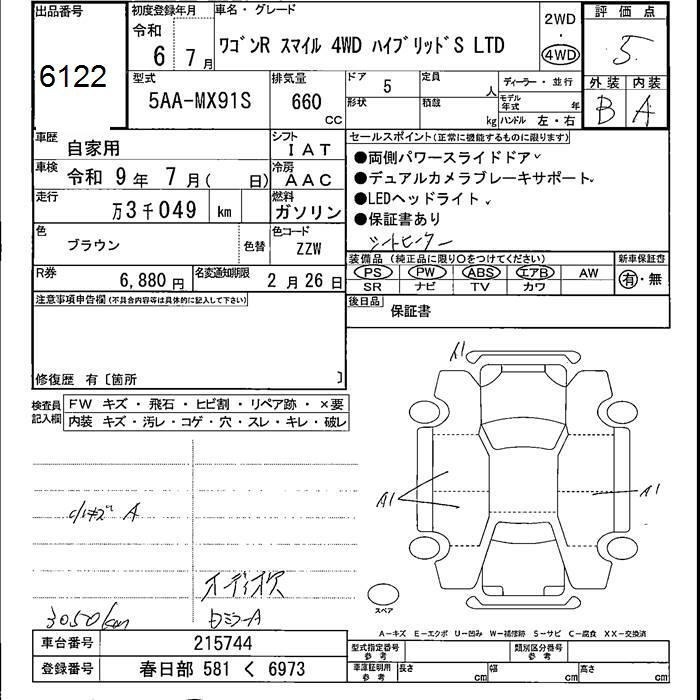 出品番号
6122
初度登録年月
令和
6 7月
車名・グレード
ワゴンR スマイル 4WD ハイブリッドS LTD
2WD
・
4WD
評価点
5
外装 内装
B A
型式
5AA-MX91S
排気量
660
CC
ドア 5
形状
定員
人
積載
kg
ディーラー・並行
モデル年式 年
ハンドル 左・右
車歴
自家用
シフト
IAT
車検
令和 9年 7月( 日)
冷房
AAC
走行
万3千049 km
燃料
ガソリン
色
ブラウン
色替
色コード
ZZW
R券
6,880円
名変通知期限
2月26日
セールスポイント(正常に機能するものに限ります)
●両側パワースライドドア
●デュアルカメラブレーキサポート
●LEDヘッドライト
●保証書あり
シートヒーター
装備品 (純正品に限り○をつけてください)
PS PW ABS エアB AW
SR ナビ TV カワ
新車保証書
有・無
後日品
保証書
注意事項申告欄(不具合内容等は具体的に記入して下さい)
修復歴 有〔箇所 〕
検査員記入欄
FW キズ・飛石・ヒビ割・リペア跡・×要
内装 キズ・汚レ・コゲ・穴・スレ・キレ・破レ
A1
A1
A1
小キズA
3050km
スペア
A-キズ E-エクボ U-凹み W-補修跡 S-サビ C-腐食 XX-交換済
車台番号
215744
登録番号
春日部 581 く 6973
型式指定番号
参考
類別区分番号
参考
車庫証明用
参考
長さ cm
幅 cm
高さ cm